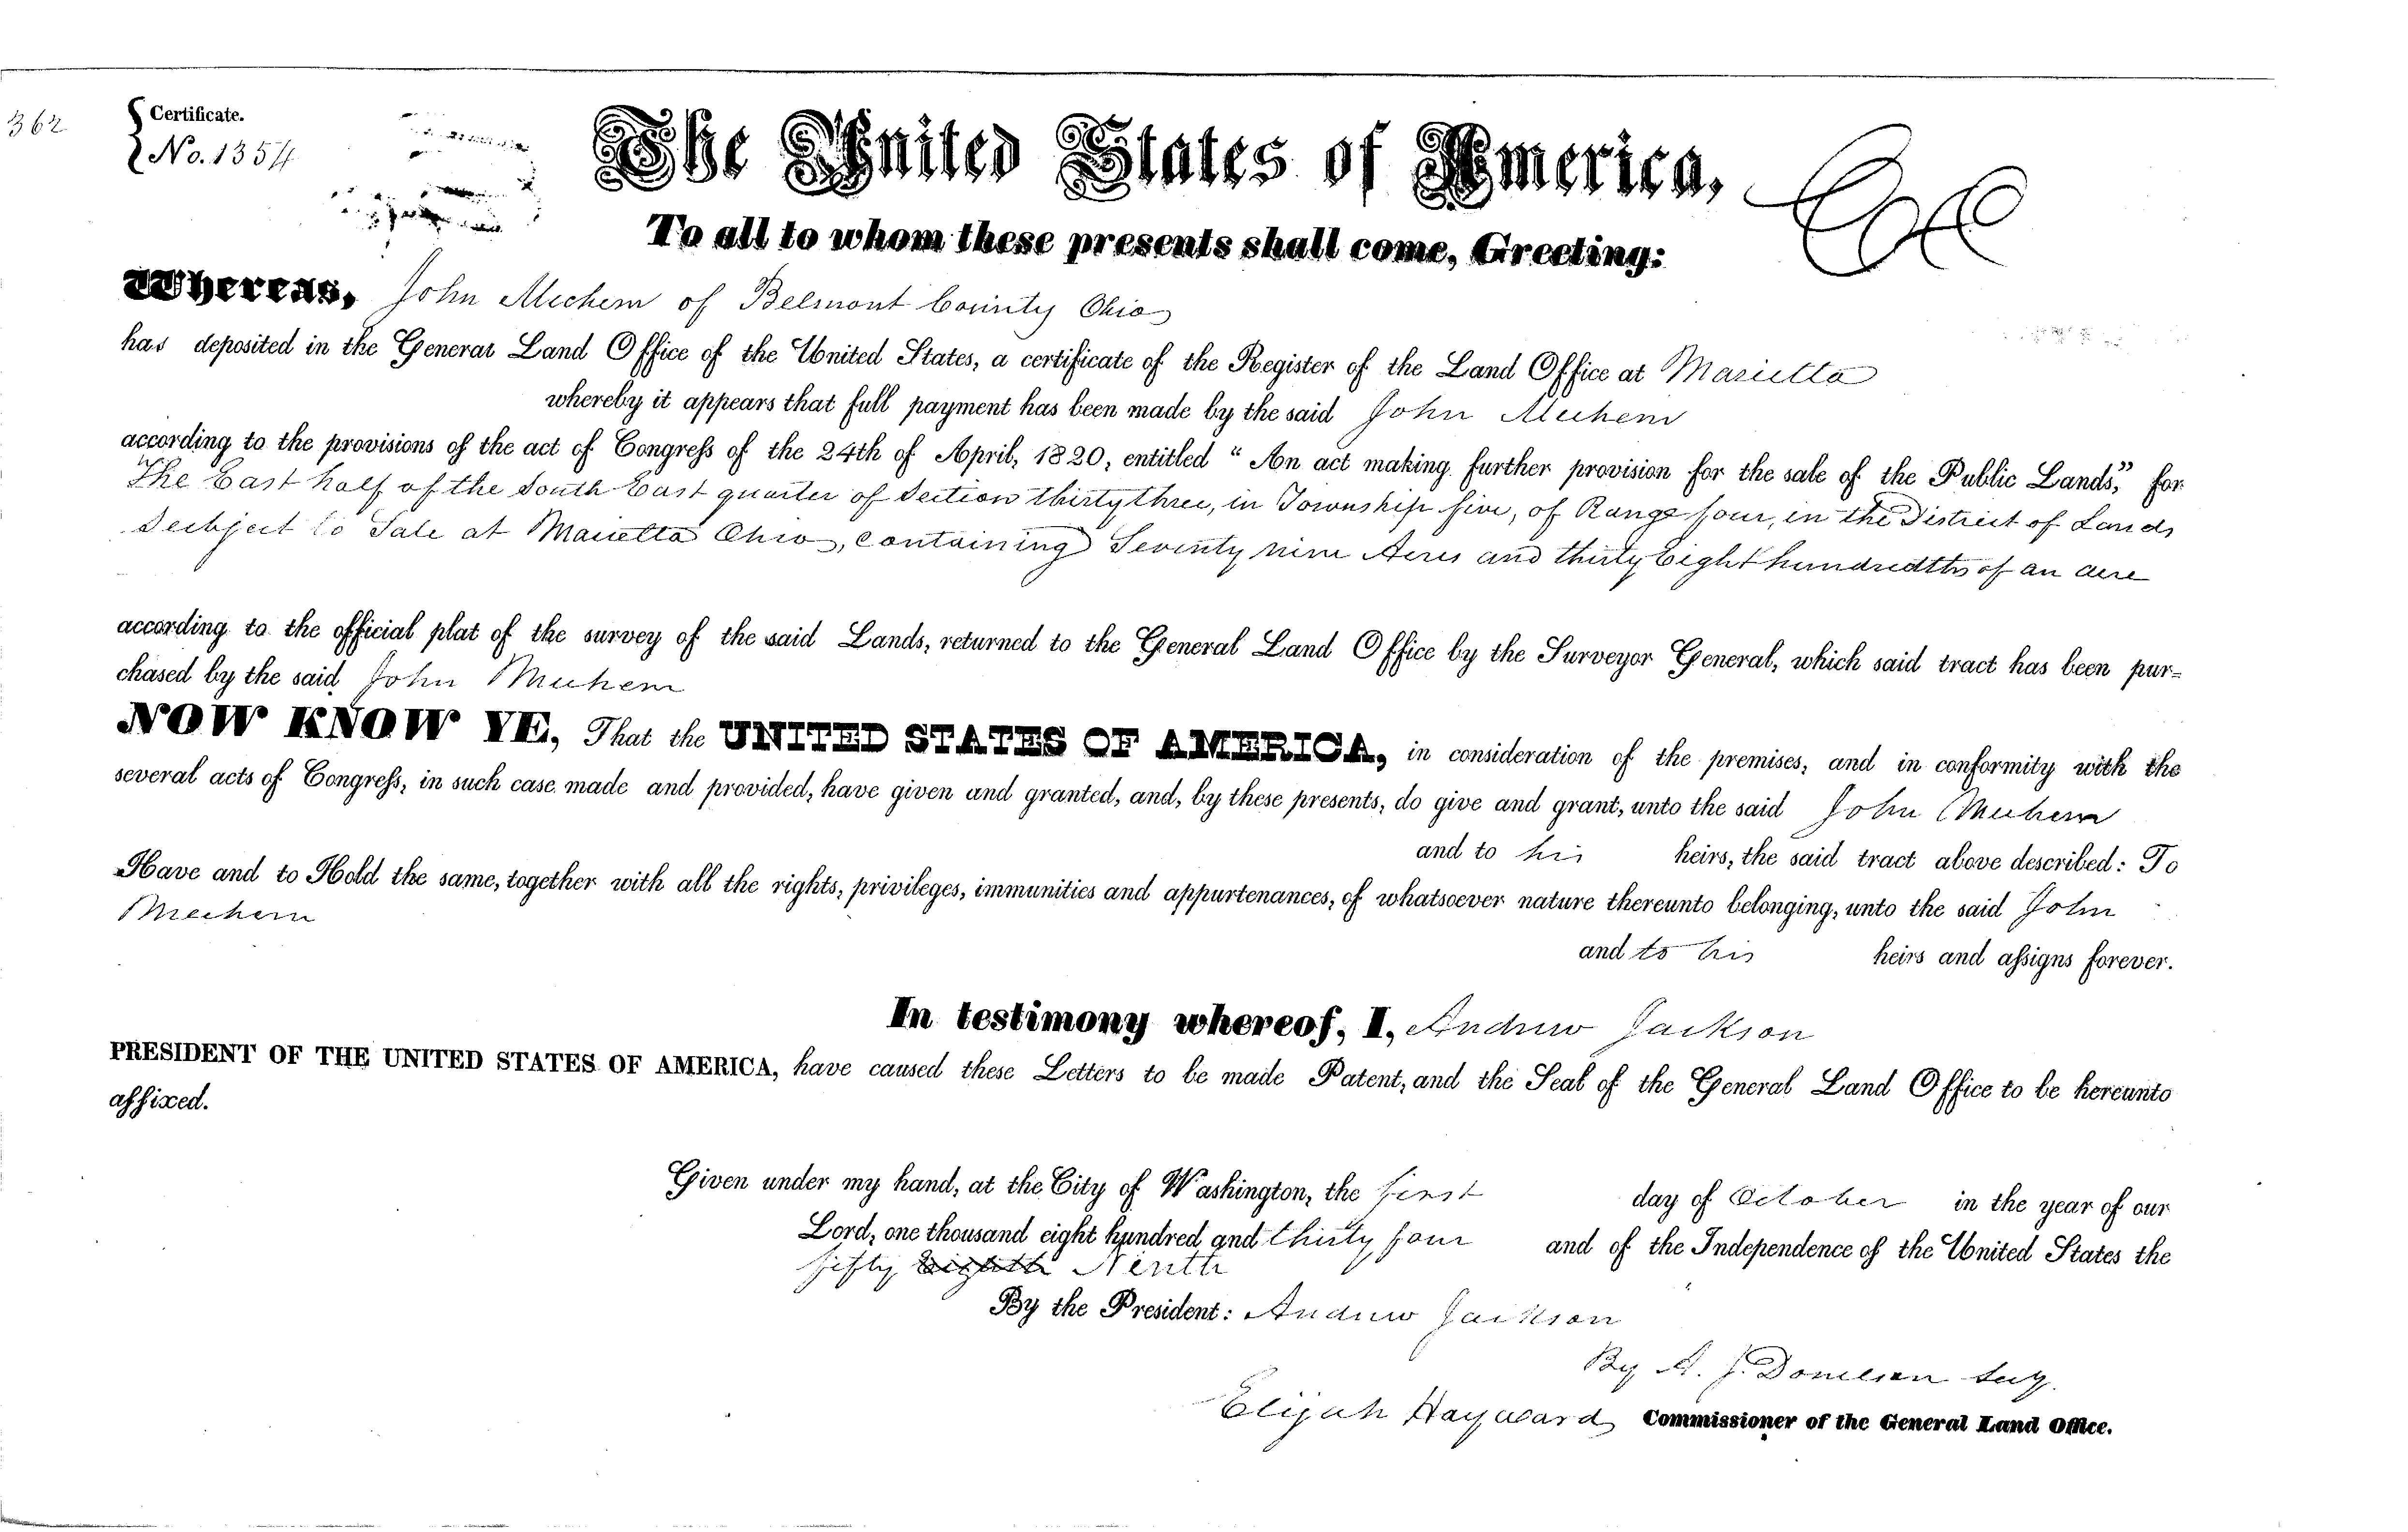 362
Certificate.
No. 1354
The United States of America,
To all to whom these presents shall come, Greeting:
Whereas, John Mechem of Belmont County Ohio
has deposited in the General Land Office of the United States, a certificate of the Register of the Land Office at Marietta
whereby it appears that full payment has been made by the said John Mechem
according to the provisions of the act of Congress of the 24th of April, 1820, entitled "An act making further provision for the sale of the Public Lands," for
The East half of the South East quarter of Section thirty three, in Township five, of Range four, in the District of Lands
Subject to Sale at Marietta Ohio, containing Seventy nine Acres and thirty Eight hundredths of an acre
according to the official plat of the survey of the said Lands, returned to the General Land Office by the Surveyor General, which said tract has been pur=
chased by the said John Mechem
NOW KNOW YE, That the UNITED STATES OF AMERICA, in consideration of the premises, and in conformity with the
several acts of Congress, in such case made and provided, have given and granted, and, by these presents, do give and grant, unto the said John Mechem
and to his heirs, the said tract above described: To
Have and to Hold the same, together with all the rights, privileges, immunities and appurtenances, of whatsoever nature thereunto belonging, unto the said John
Mechem
and to his heirs and assigns forever.
In testimony whereof, I, Andrew Jackson
PRESIDENT OF THE UNITED STATES OF AMERICA, have caused these Letters to be made Patent, and the Seal of the General Land Office to be hereunto
affixed.
Given under my hand, at the City of Washington, the first day of October in the year of our
Lord, one thousand eight hundred and thirty four and of the Independence of the United States the
fifty Eighth Ninth
By the President: Andrew Jackson
By A. J. Donelson Secy.
Elijah Hayward Commissioner of the General Land Office.